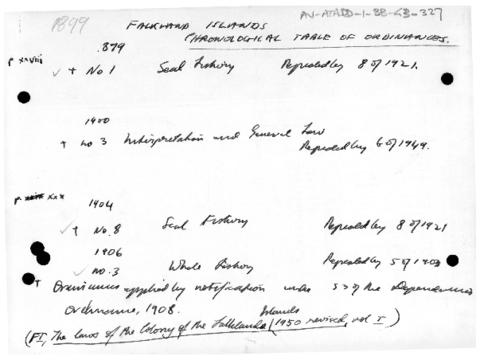 1899
FALKLAND ISLANDS
CHRONOLOGICAL TABLE OF ORDINANCES.
.899
p xxviii
✓ + No 1 Seal Fishery Repealed by 8 of 1921.
1900
+ no 3 Interpretation and General Law Repealed by 6 of 1949.
p xxx
1904
✓ + No. 8 Seal Fishery Repealed by 8 of 1921
1906
✓ no. 3 Whale Fishery Repealed by 5 of 1908
+ Ordinances applied by notification under s 3 of the Dependencies
Ordinance, 1908.
(FI, The Laws of the Colony of the Falkland Islands (1950 revised, vol I.)